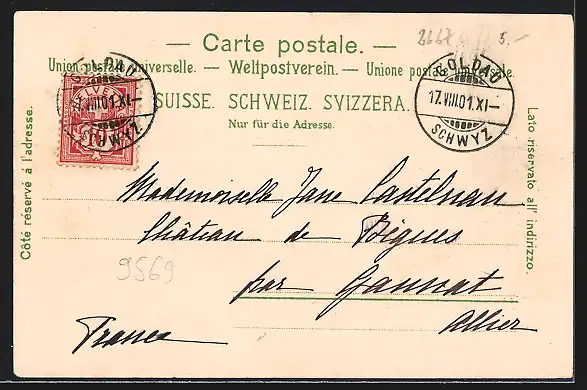 2667 5.-
— Carte postale. —
Union postale universelle. — Weltpostverein. — Unione postale
SUISSE. SCHWEIZ. SVIZZERA.
Nur für die Adresse.
GOLDAU
17.VIII.01.XI—
SCHWYZ
GOLDAU
17.VIII.01.XI—
SCHWYZ
HELVETIA
10
Côté réservé à l'adresse.
Lato riservato all' indirizzo.
Mademoiselle Jane Castelnau
Château de Bègues
par Gannat
Allier
France
9569